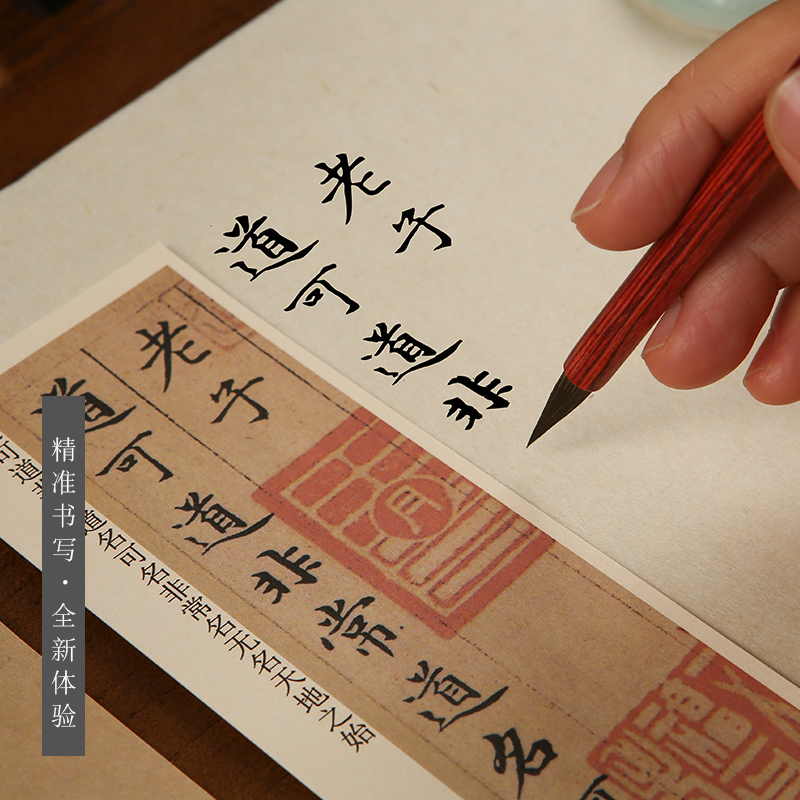 老子
道可道非
老子
道可道非常道名可
可道非常道名可名非常名无名天地之始
精准书写·全新体验